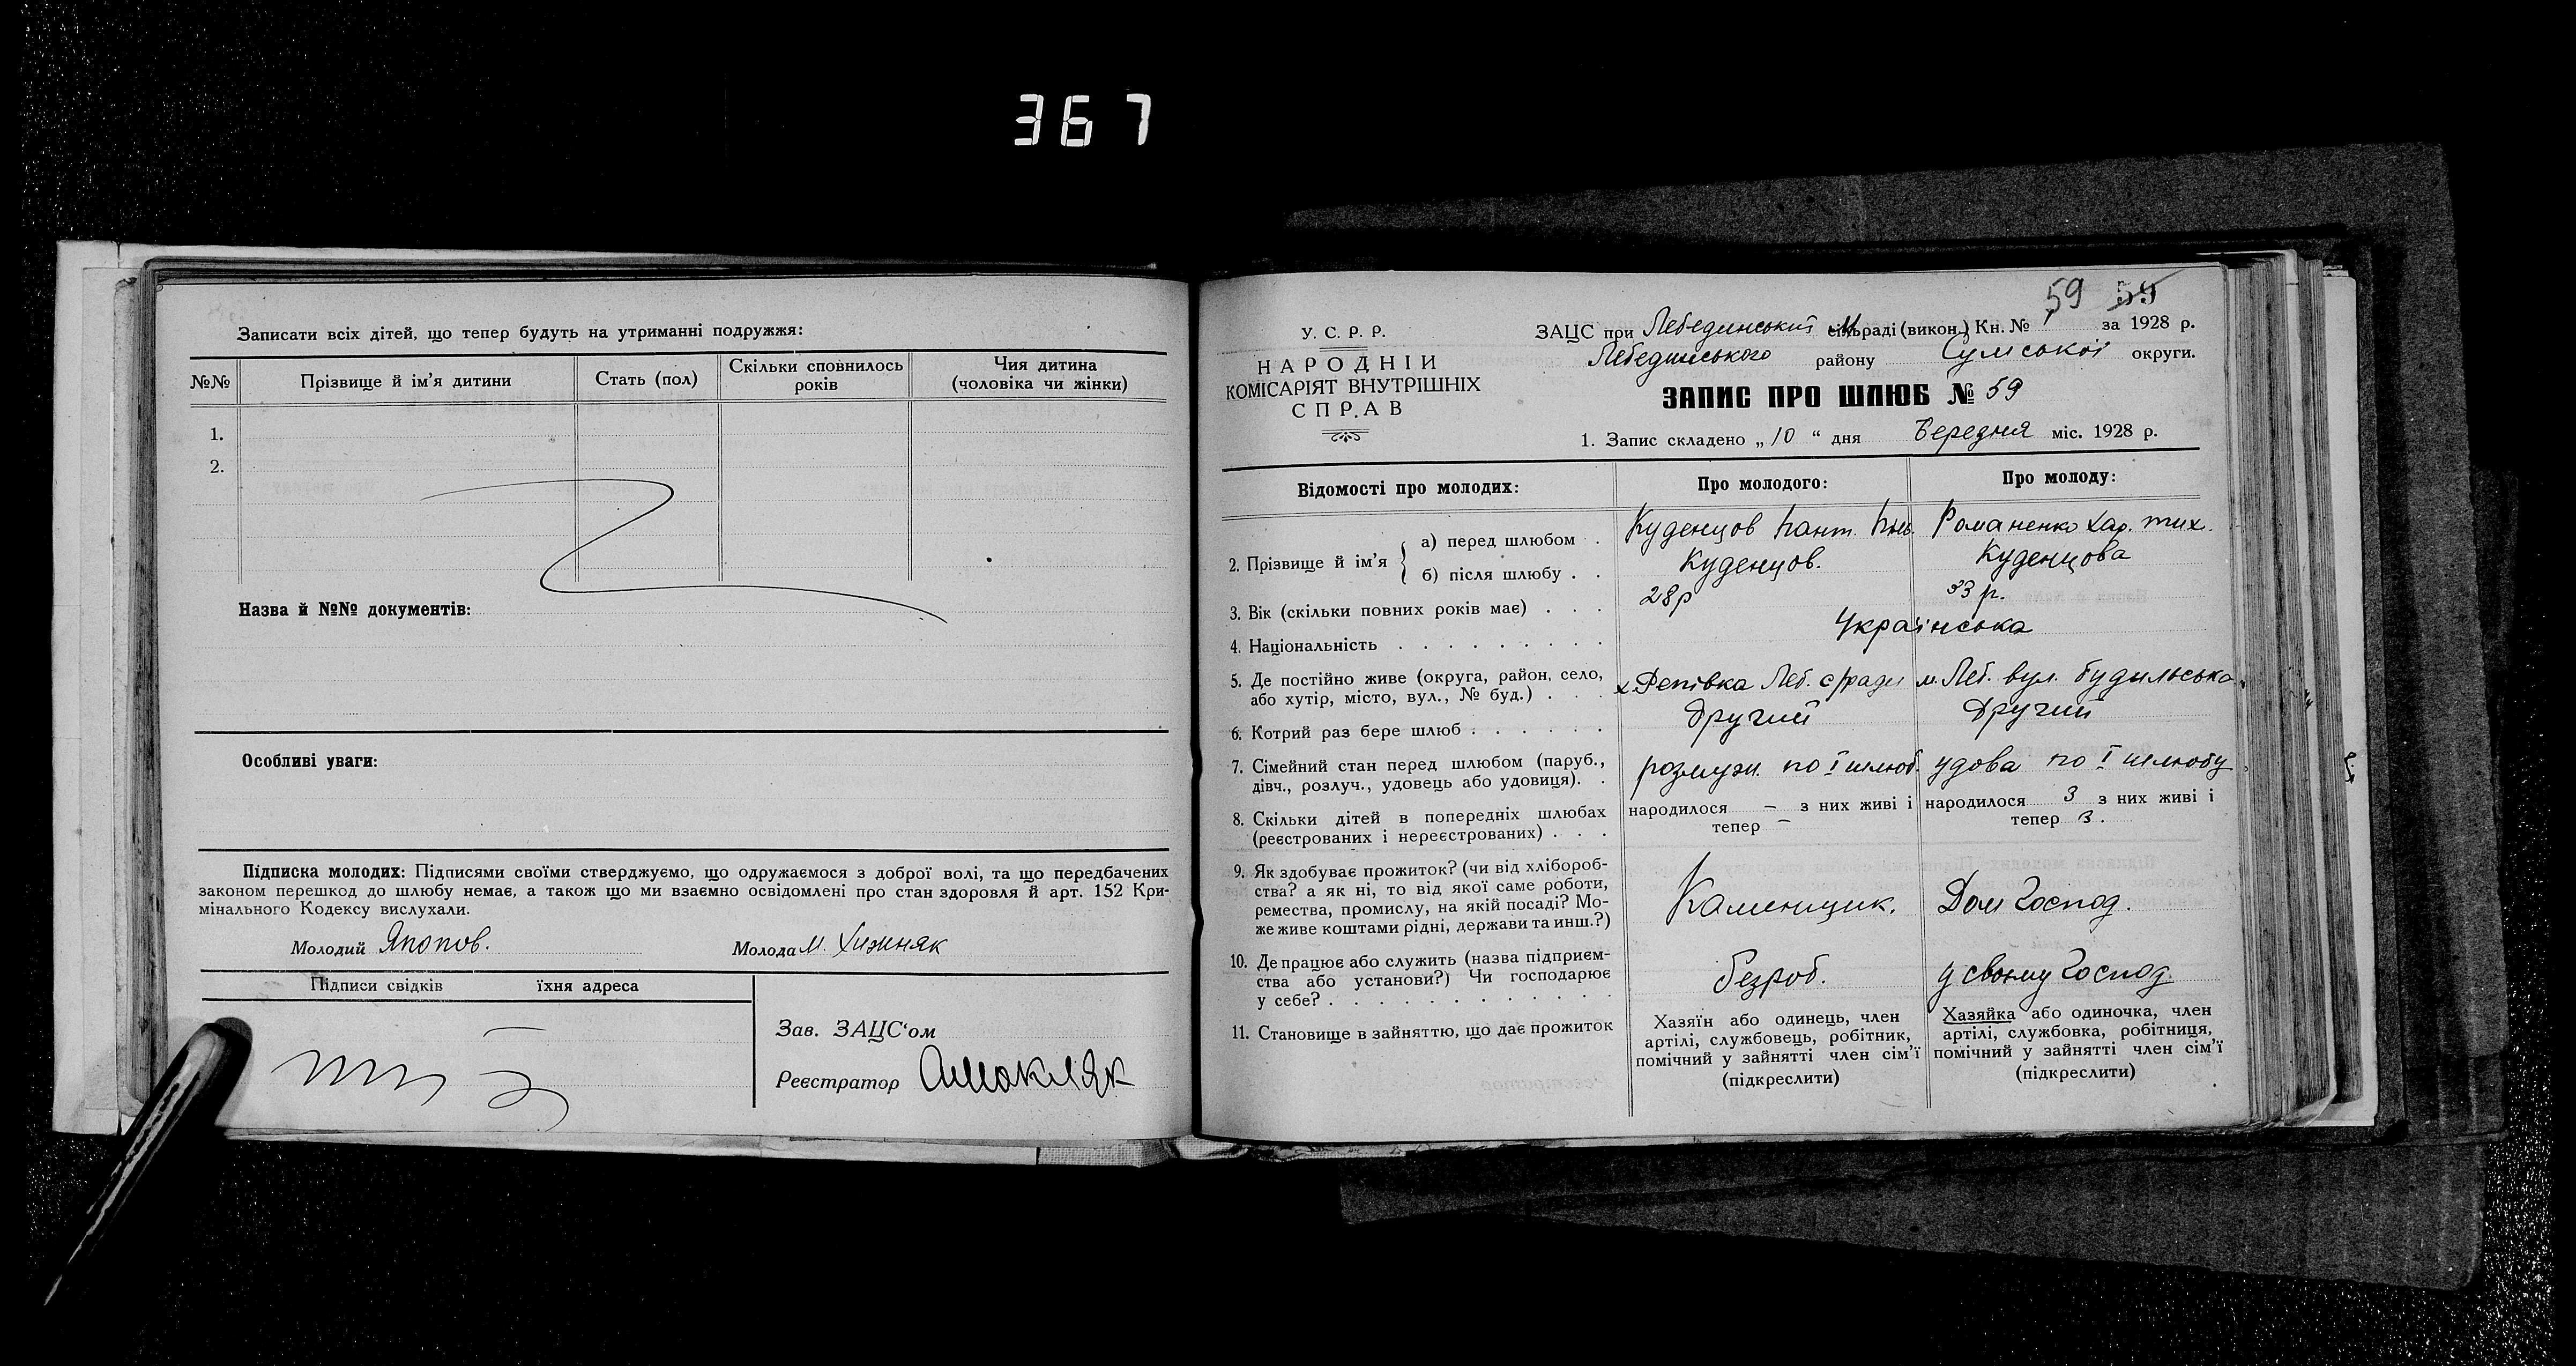 367
Записати всіх дітей, що тепер будуть на утриманні подружжя:
№№ Прізвище й ім'я дитини Стать (пол) Скільки сповнилось років Чия дитина (чоловіка чи жінки)
1.
2.
Назва й №№ документів:
Особливі уваги:
Підписка молодих: Підписями своїми стверджуємо, що одружаємося з доброї волі, та що передбачених
законом перешкод до шлюбу немає, а також що ми взаємно освідомлені про стан здоровля й арт. 152 Кри-
мінального Кодексу вислухали.
Молодий Япопов. Молода М. Хижняк
Підписи свідків їхня адреса
Зав. ЗАЦС'ом
Реєстратор
59 59
У. С. Р. Р.
НАРОДНІЙ
КОМІСАРІЯТ ВНУТРІШНІХ
СПРАВ
ЗАЦС при Лебединській м сільраді (викон.) Кн. № за 1928 р.
Лебединського району Сумської округи.
ЗАПИС ПРО ШЛЮБ № 59
1. Запис складено „10“ дня Березня міс. 1928 р.
Відомості про молодих: Про молодого: Про молоду:
2. Прізвище й ім'я
а) перед шлюбом . Куденцов Пант. Романенко Хар. Тих.
б) після шлюбу . . Куденцов. Куденцова
3. Вік (скільки повних років має) . . . 28р 33 р.
4. Національність . . . . . . . . . Українська
5. Де постійно живе (округа, район, село,
або хутір, місто, вул., № буд.) . . . х. Репівка Леб. с/ради м. Леб. вул. Будильська
6. Котрий раз бере шлюб . . . . . . Другий Другий
7. Сімейний стан перед шлюбом (паруб.,
дівч., розлуч., удовець або удовиця). . розлуч. по І шлюб. удова по І шлюбу
8. Скільки дітей в попередніх шлюбах
(реєстрованих і нереєстрованих) . . .
народилося – з них живі і
тепер –
народилося 3 з них живі і
тепер 3.
9. Як здобуває прожиток? (чи від хлібороб-
ства? а як ні, то від якої саме роботи,
ремества, промислу, на якій посаді? Мо-
же живе коштами рідні, держави та инш.?)
Каменщик. Дом Господ.
10. Де працює або служить (назва підприєм-
ства або установи?) Чи господарює
у себе? . . . . . . . . . . . .
безроб. у своєму господ.
11. Становище в зайняттю, що дає прожиток
Хазяїн або одинець, член
артілі, службовець, робітник,
помічний у зайнятті член сім'ї
(підкреслити)
Хазяйка або одиночка, член
артілі, службовка, робітниця,
помічний у зайнятті член сім'ї
(підкреслити)